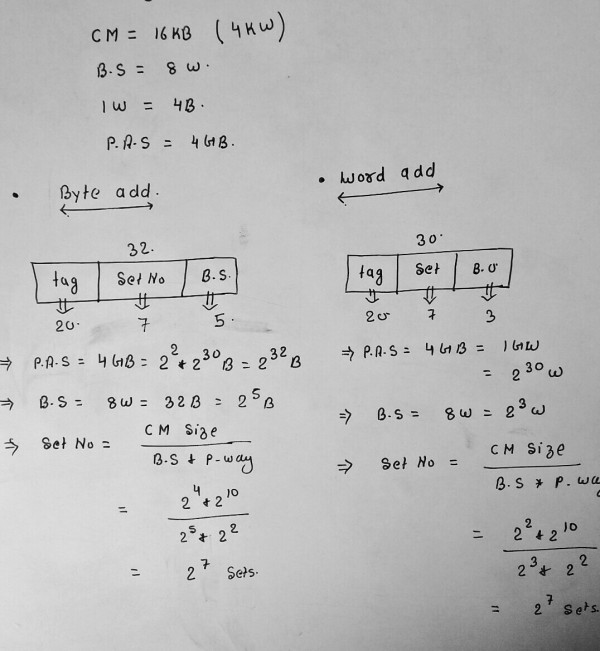 CM = 16KB (4KW)
B.S = 8 W.
1W = 4B.
P.A.S = 4GB.
• Byte add.
32.
tag Set No B.S.
20. 7 5.
⇒ P.A.S = 4GB = 2^2 * 2^30 B = 2^32 B
⇒ B.S = 8W = 32B = 2^5 B
⇒ Set No = CM Size / B.S * P-way
= 2^4 * 2^10 / 2^5 * 2^2
= 2^7 Sets.
• Word add
30.
tag Set B.O
20 7 3
⇒ P.A.S = 4GB = 1GW
= 2^30 W
⇒ B.S = 8W = 2^3 W
⇒ Set No = CM Size / B.S * P. way
= 2^2 * 2^10 / 2^3 * 2^2
= 2^7 Sets.